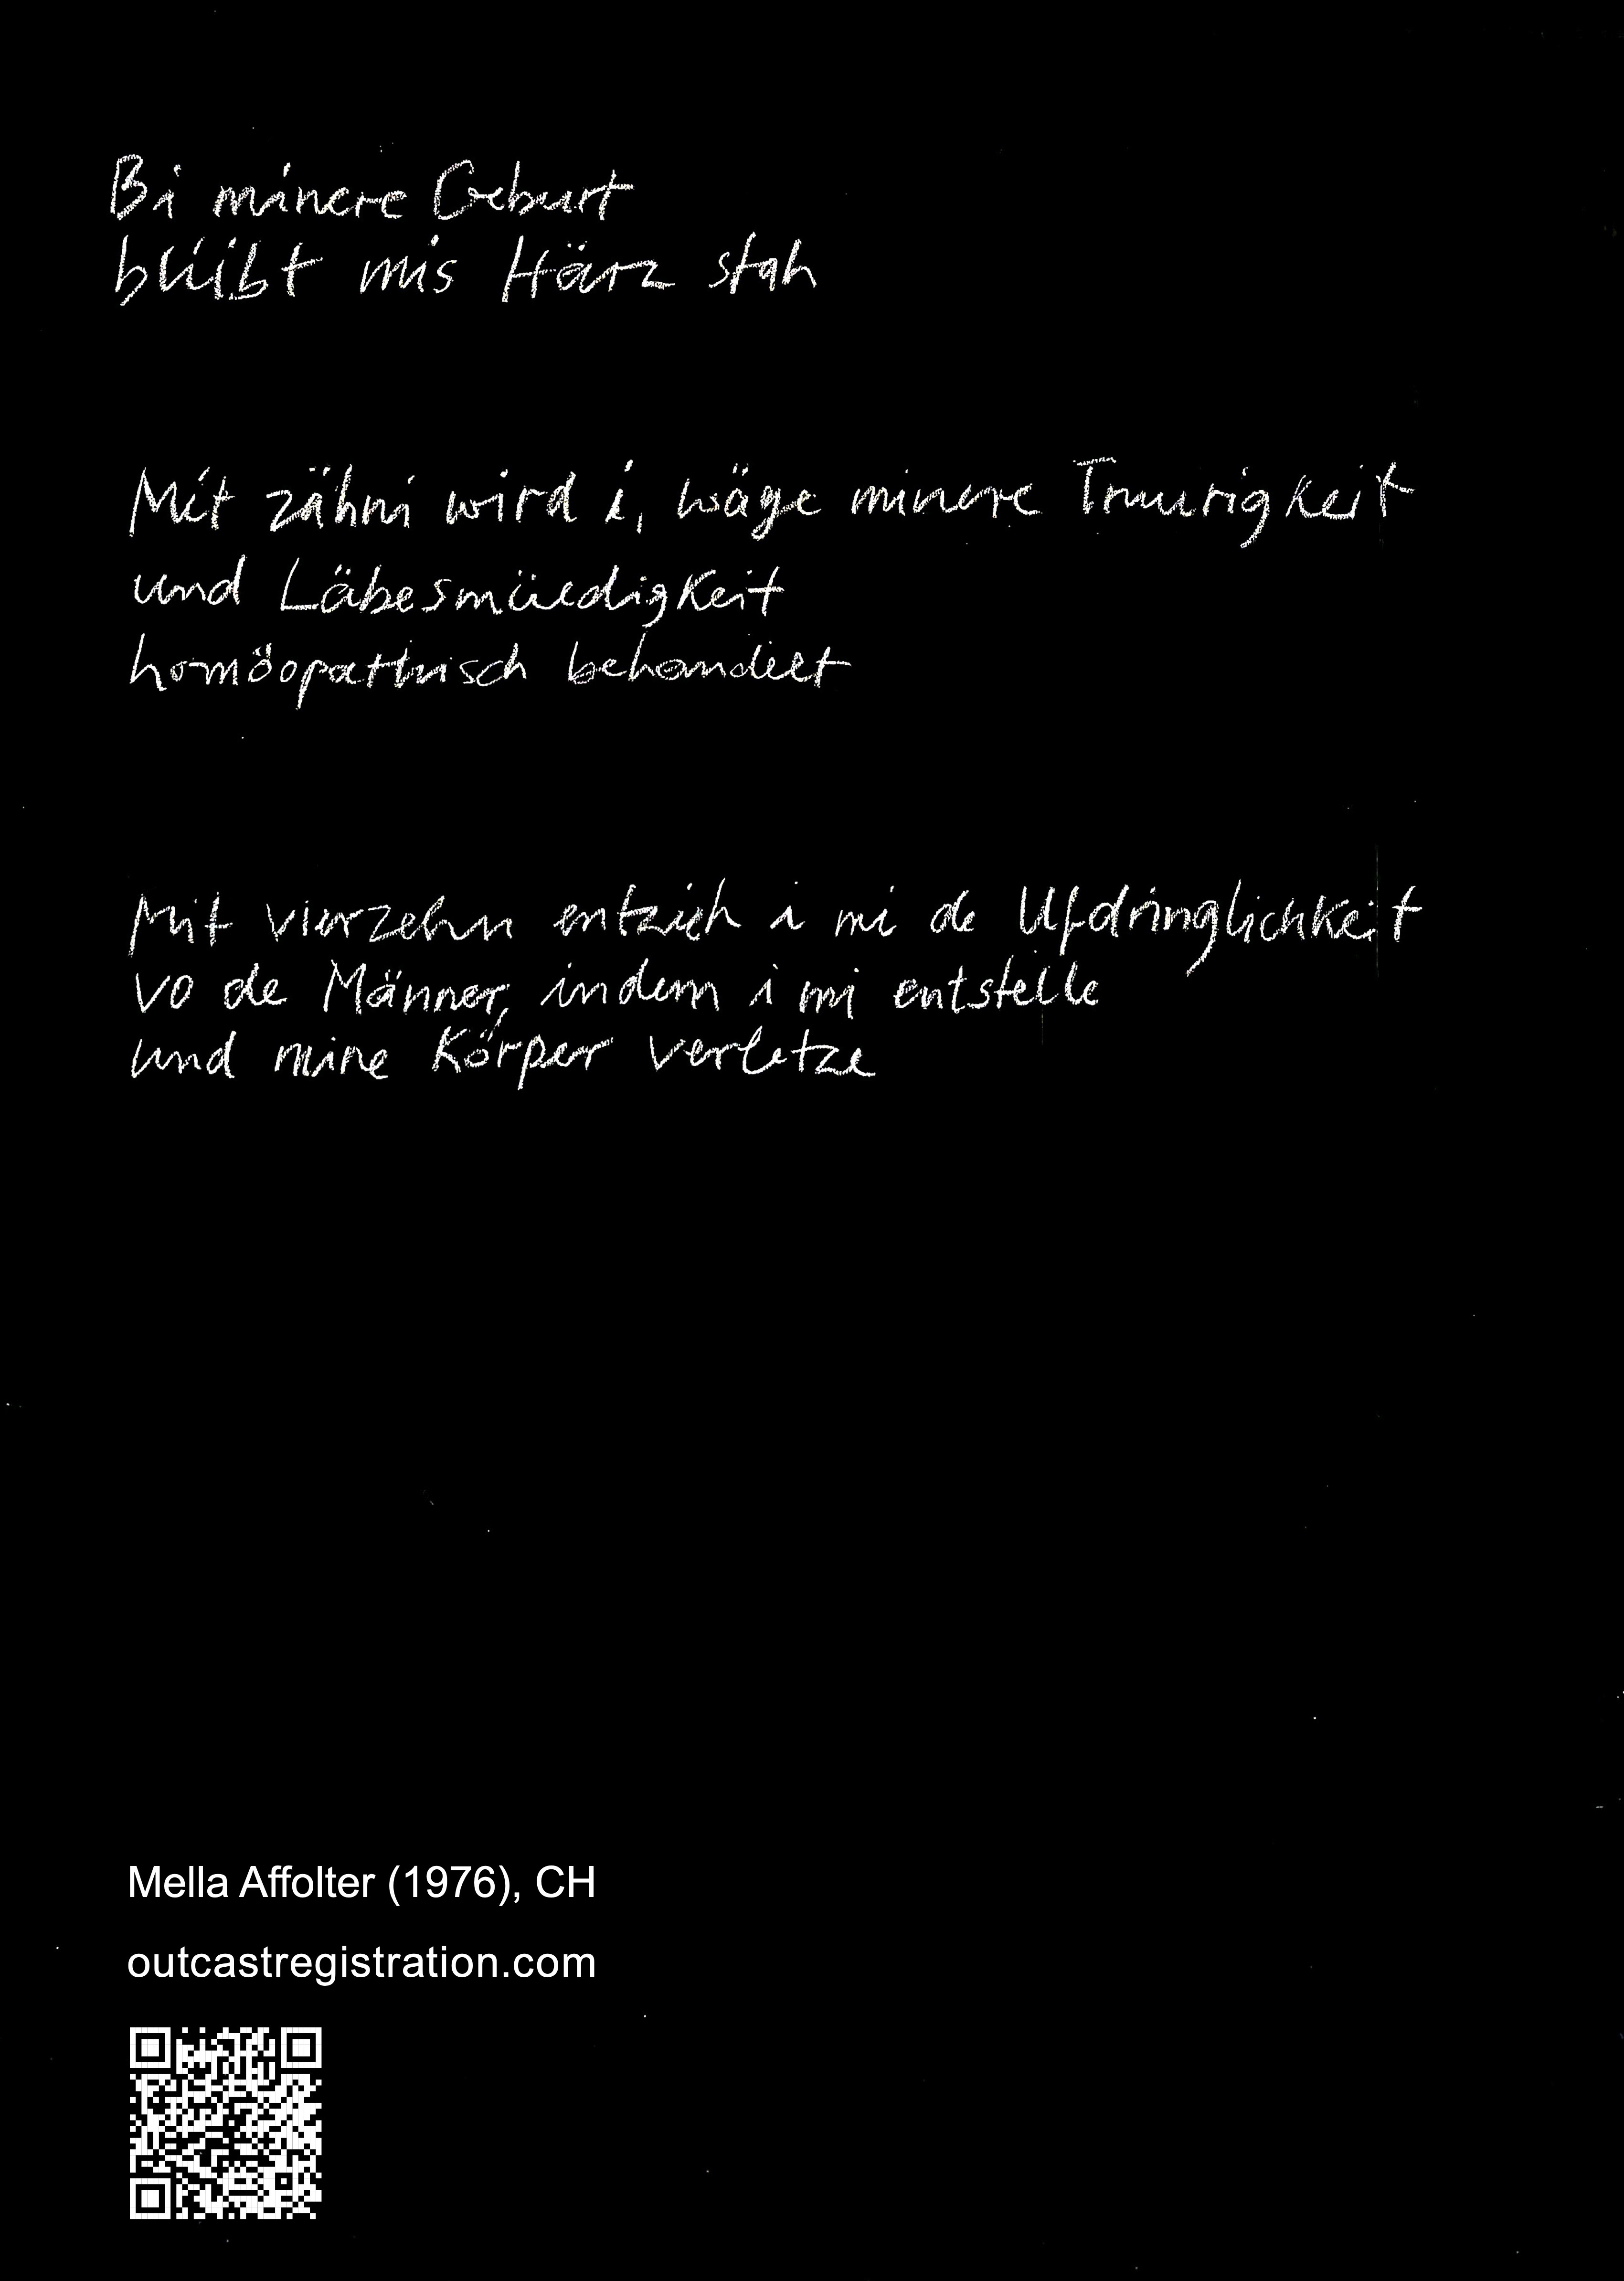 Bi minere Geburt
bliibt mis Härz stah
Mit zähni wird i, wäge minere Truurigkeit
und Läbesmüedigkeit
homöopathisch behandelt
Mit vierzehn entzieh i mi de Ufdringlichkeit
vo de Männer, indem i mi entstelle
und mine Körper verletze
Mella Affolter (1976), CH
outcastregistration.com